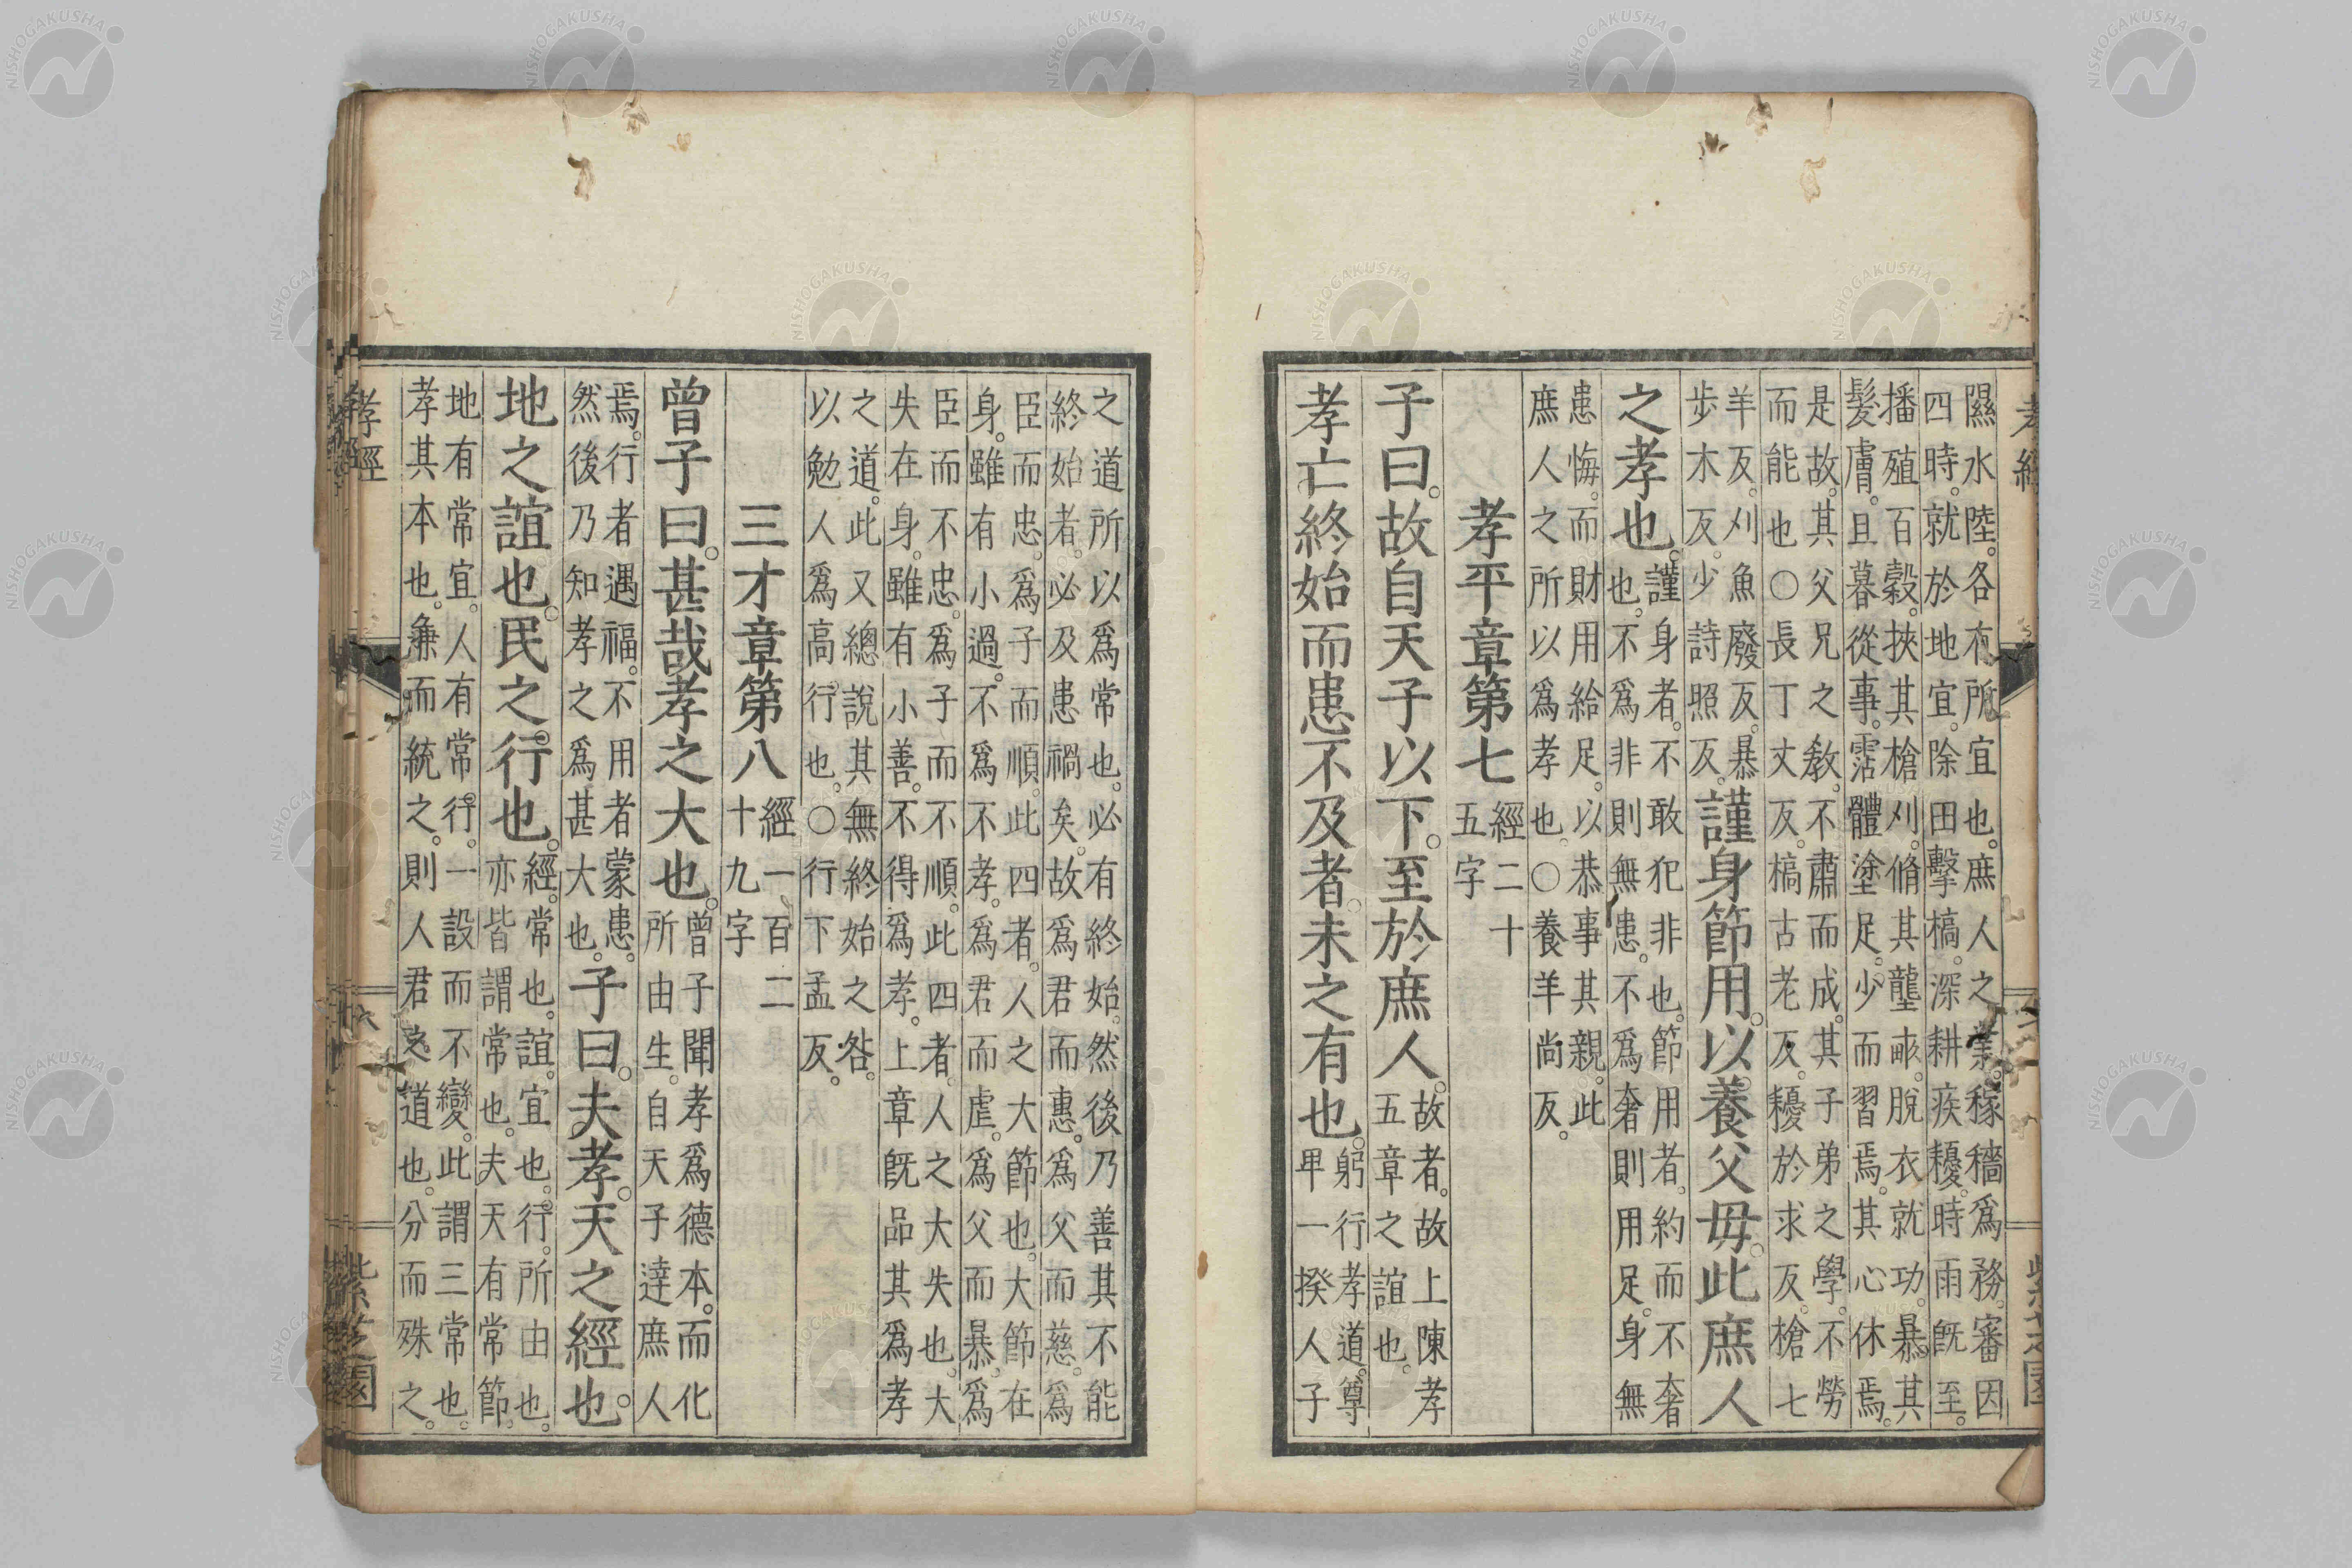 隰水陸。各有所宜也。庶人之業。稼穡爲務。審因
四時。就於地宜。除田擊槁。深耕疾耰。時雨旣至。
播殖百穀。挾其槍刈。脩其壟畝。脫衣就功。暴其
髮膚。旦暮從事。霑體塗足。少而習焉。其心休焉。
是故。其父兄之教。不肅而成。其子弟之學。不勞
而能也○長丁丈反。槁古老反。耰於求反。槍七
羊反。刈魚廢反。暴
步木反。少詩照反。
謹身節用。以養父毋。此庶人
之孝也。
謹身者。不敢犯非也。節用者。約而不奢
也。不爲非則無患。不爲奢則用足。身無
患悔。而財用給足。以恭事其親。此
庶人之所以爲孝也。○養羊尚反。
孝平章第七
經二十
五字
子曰。故自天子以下。至於庶人。
故者。故上陳孝
五章之誼也。
孝亡終始而患不及者。未之有也。
躬行孝道。尊
卑一揆人子
之道所以爲常也。必有終始。然後乃善其不能
終始者。必及患禍矣。故爲君而惠。爲父而慈。爲
臣而忠。爲子而順。此四者。人之大節也。大節在
身。雖有小過。不爲不孝。爲君而虐。爲父而暴。爲
臣而不忠。爲子而不順。此四者。人之大失也。大
失在身。雖有小善。不得爲孝。上章旣品其爲孝
之道。此又總說其無終始之咎。
以勉人爲高行也。○行下孟反。
三才章第八
經一百二
十九字
曾子曰。甚哉孝之大也。
曾子聞孝爲德本。而化
所由生。自天子達庶人
焉。行者遇福。不用者蒙患。
然後乃知孝之爲甚大也。
子曰。夫孝。天之經也。
地之誼也。民之行也。
經。常也。誼。宜也。行。所由也。
亦皆謂常也。夫天有常節。
地有常宜。人有常行。一設而不變。此謂三常也。
孝其本也。兼而統之。則人君之道也。分而殊之。
孝經
紫芝園